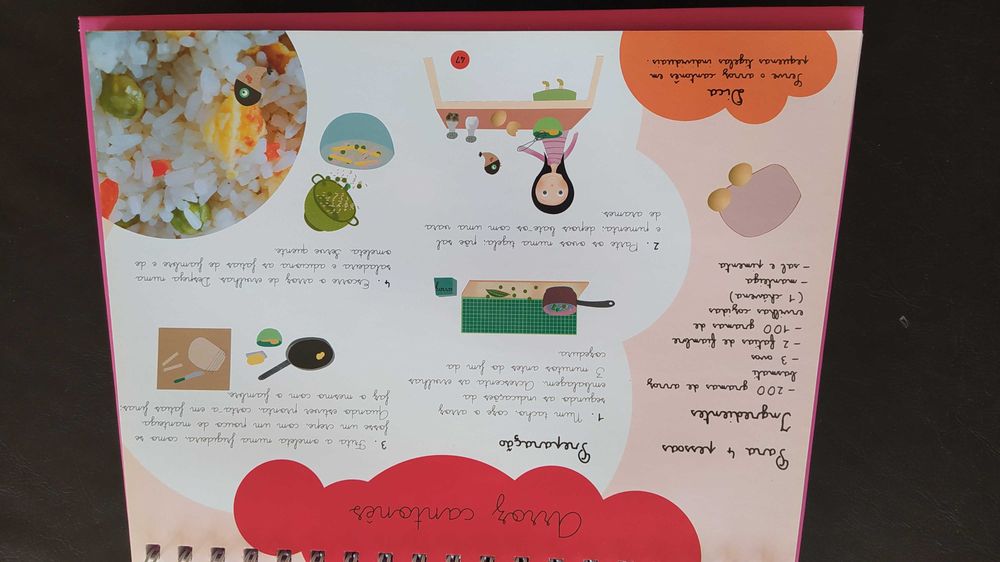 Arroz cantonês
Para 4 pessoas
Ingredientes
- 200 gramas de arroz
basmati
- 3 ovos
- 2 fatias de fiambre
- 100 gramas de
ervilhas cozidas
(1 chávena)
- manteiga
- sal e pimenta
Dica
Serve o arroz cantonês em
pequenas tigelas individuais.
Preparação
1. Num tacho, coze o arroz
segundo as indicações da
embalagem. Acrescenta as ervilhas
3 minutos antes do fim da
cozedura
2. Parte os ovos numa tigela, põe sal
e pimenta, depois bate-os com uma vara
de arames.
3. Frita a omeleta numa frigideira, como se
fosse um crepe, com um pouco de manteiga
Quando estiver pronta, corta-a em fatias finas;
faz o mesmo com o fiambre.
4. Escorre o arroz de ervilhas. Despeja numa
saladeira e adiciona as fatias de fiambre e de
omeleta. Serve quente.
47